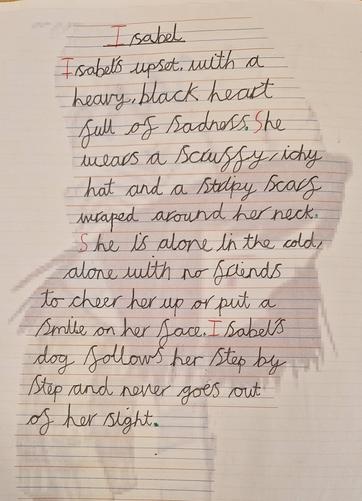 Isabel
Isabel's upset. with a
heavy, black heart
full of sadness. She
wears a scruffy, ichy
hat and a stripy scarf
wraped around her neck.
She is alone in the cold,
alone with no friends
to cheer her up or put a
smile on her face. Isabel's
dog follows her step by
step and never goes out
of her sight.